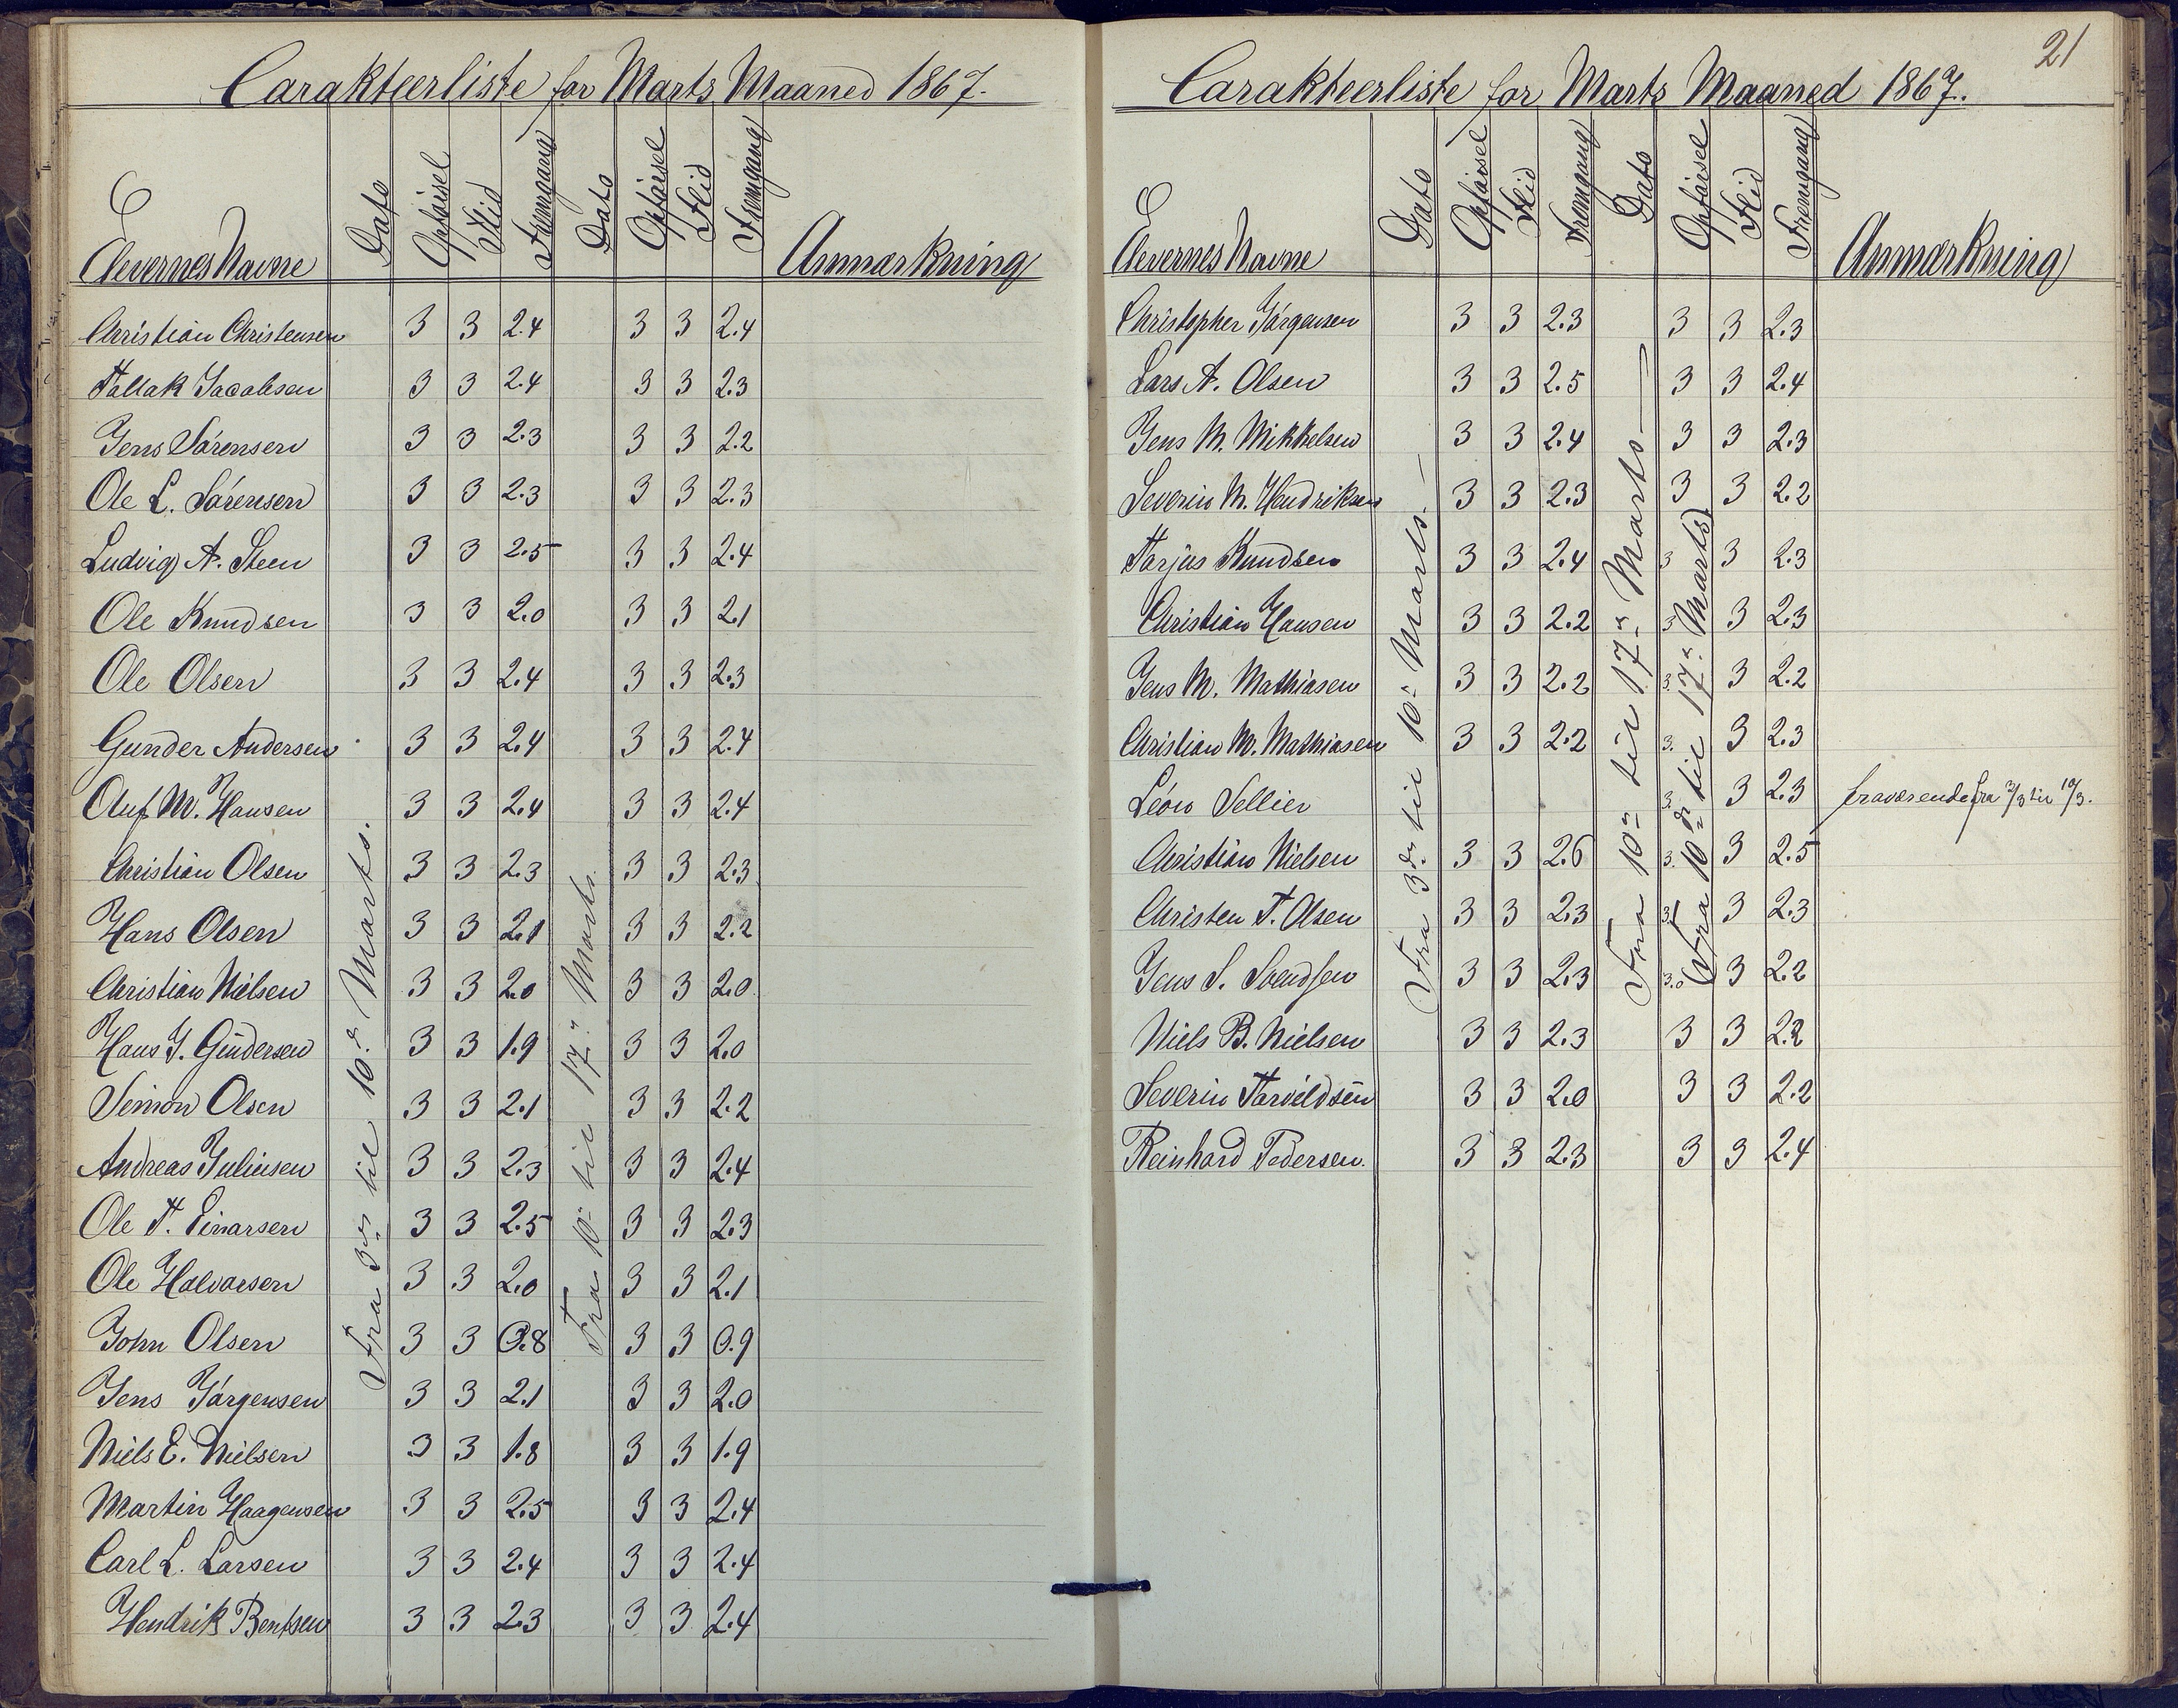 Carakteerliste for Marts Maaned 1867.
Elevernes Navne Dato Opførsel Flid Fremgang Dato Opførsel Flid Fremgang Anmærkning
Fra 3de til 10de Marts.
Fra 10de til 17de Marts.
Christian Christensen 3 3 2.4 3 3 2.4
Tallak Jacobsen 3 3 2.4 3 3 2.3
Jens Sørensen 3 3 2.3 3 3 2.2
Ole L. Sørensen 3 3 2.3 3 3 2.3
Ludvig A. Steen 3 3 2.5 3 3 2.4
Ole Knudsen 3 3 2.0 3 3 2.1
Ole Olsen 3 3 2.4 3 3 2.3
Gunder Andersen 3 3 2.4 3 3 2.4
Oluf M. Hansen 3 3 2.4 3 3 2.4
Christian Olsen 3 3 2.3 3 3 2.3
Hans Olsen 3 3 2.1 3 3 2.2
Christian Nielsen 3 3 2.0 3 3 2.0
Hans J. Gundersen 3 3 1.9 3 3 2.0
Simon Olsen 3 3 2.1 3 3 2.2
Andreas Juliusen 3 3 2.3 3 3 2.4
Ole T. Einarsen 3 3 2.5 3 3 2.3
Ole Halvorsen 3 3 2.0 3 3 2.1
John Olsen 3 3 0.8 3 3 0.9
Jens Jørgensen 3 3 2.1 3 3 2.0
Niels E. Nielsen 3 3 1.8 3 3 1.9
Martin Haagensen 3 3 2.5 3 3 2.4
Carl L. Larsen 3 3 2.4 3 3 2.4
Hendrik Bentsen 3 3 2.3 3 3 2.4
21
Carakteerliste for Marts Maaned 1867.
Elevernes Navne Dato Opførsel Flid Fremgang Dato Opførsel Flid Fremgang Anmærkning
Fra 3de til 10de Marts.
Fra 10de til 17de Marts
(Fra 10de til 17de Marts)
Christopher Jørgensen 3 3 2.3 3 3 2.3
Lars A. Olsen 3 3 2.5 3 3 2.4
Jens M. Mikkelsen 3 3 2.4 3 3 2.3
Severin M. Hendriksen 3 3 2.3 3 3 2.2
Tarjus Knudsen 3 3 2.4 3 3 2.3
Christian Hansen 3 3 2.2 3 3 2.3
Jens M. Mathiasen 3 3 2.2 3. 3 2.2
Christian M. Mathiasen 3 3 2.2 3. 3 2.3
Léon Sellier 3. 3 2.3 fraværende fra 3/3 til 10/3.
Christian Nielsen 3 3 2.6 3. 3 2.5
Christen T. Olsen 3 3 2.3 3. 3 2.3
Jens S. Svendsen 3 3 2.3 3.0 3 2.2
Niels B. Nielsen 3 3 2.3 3 3 2.2
Severin Tarvildsen 3 3 2.0 3 3 2.2
Reinhard Pedersen. 3 3 2.3 3 3 2.4